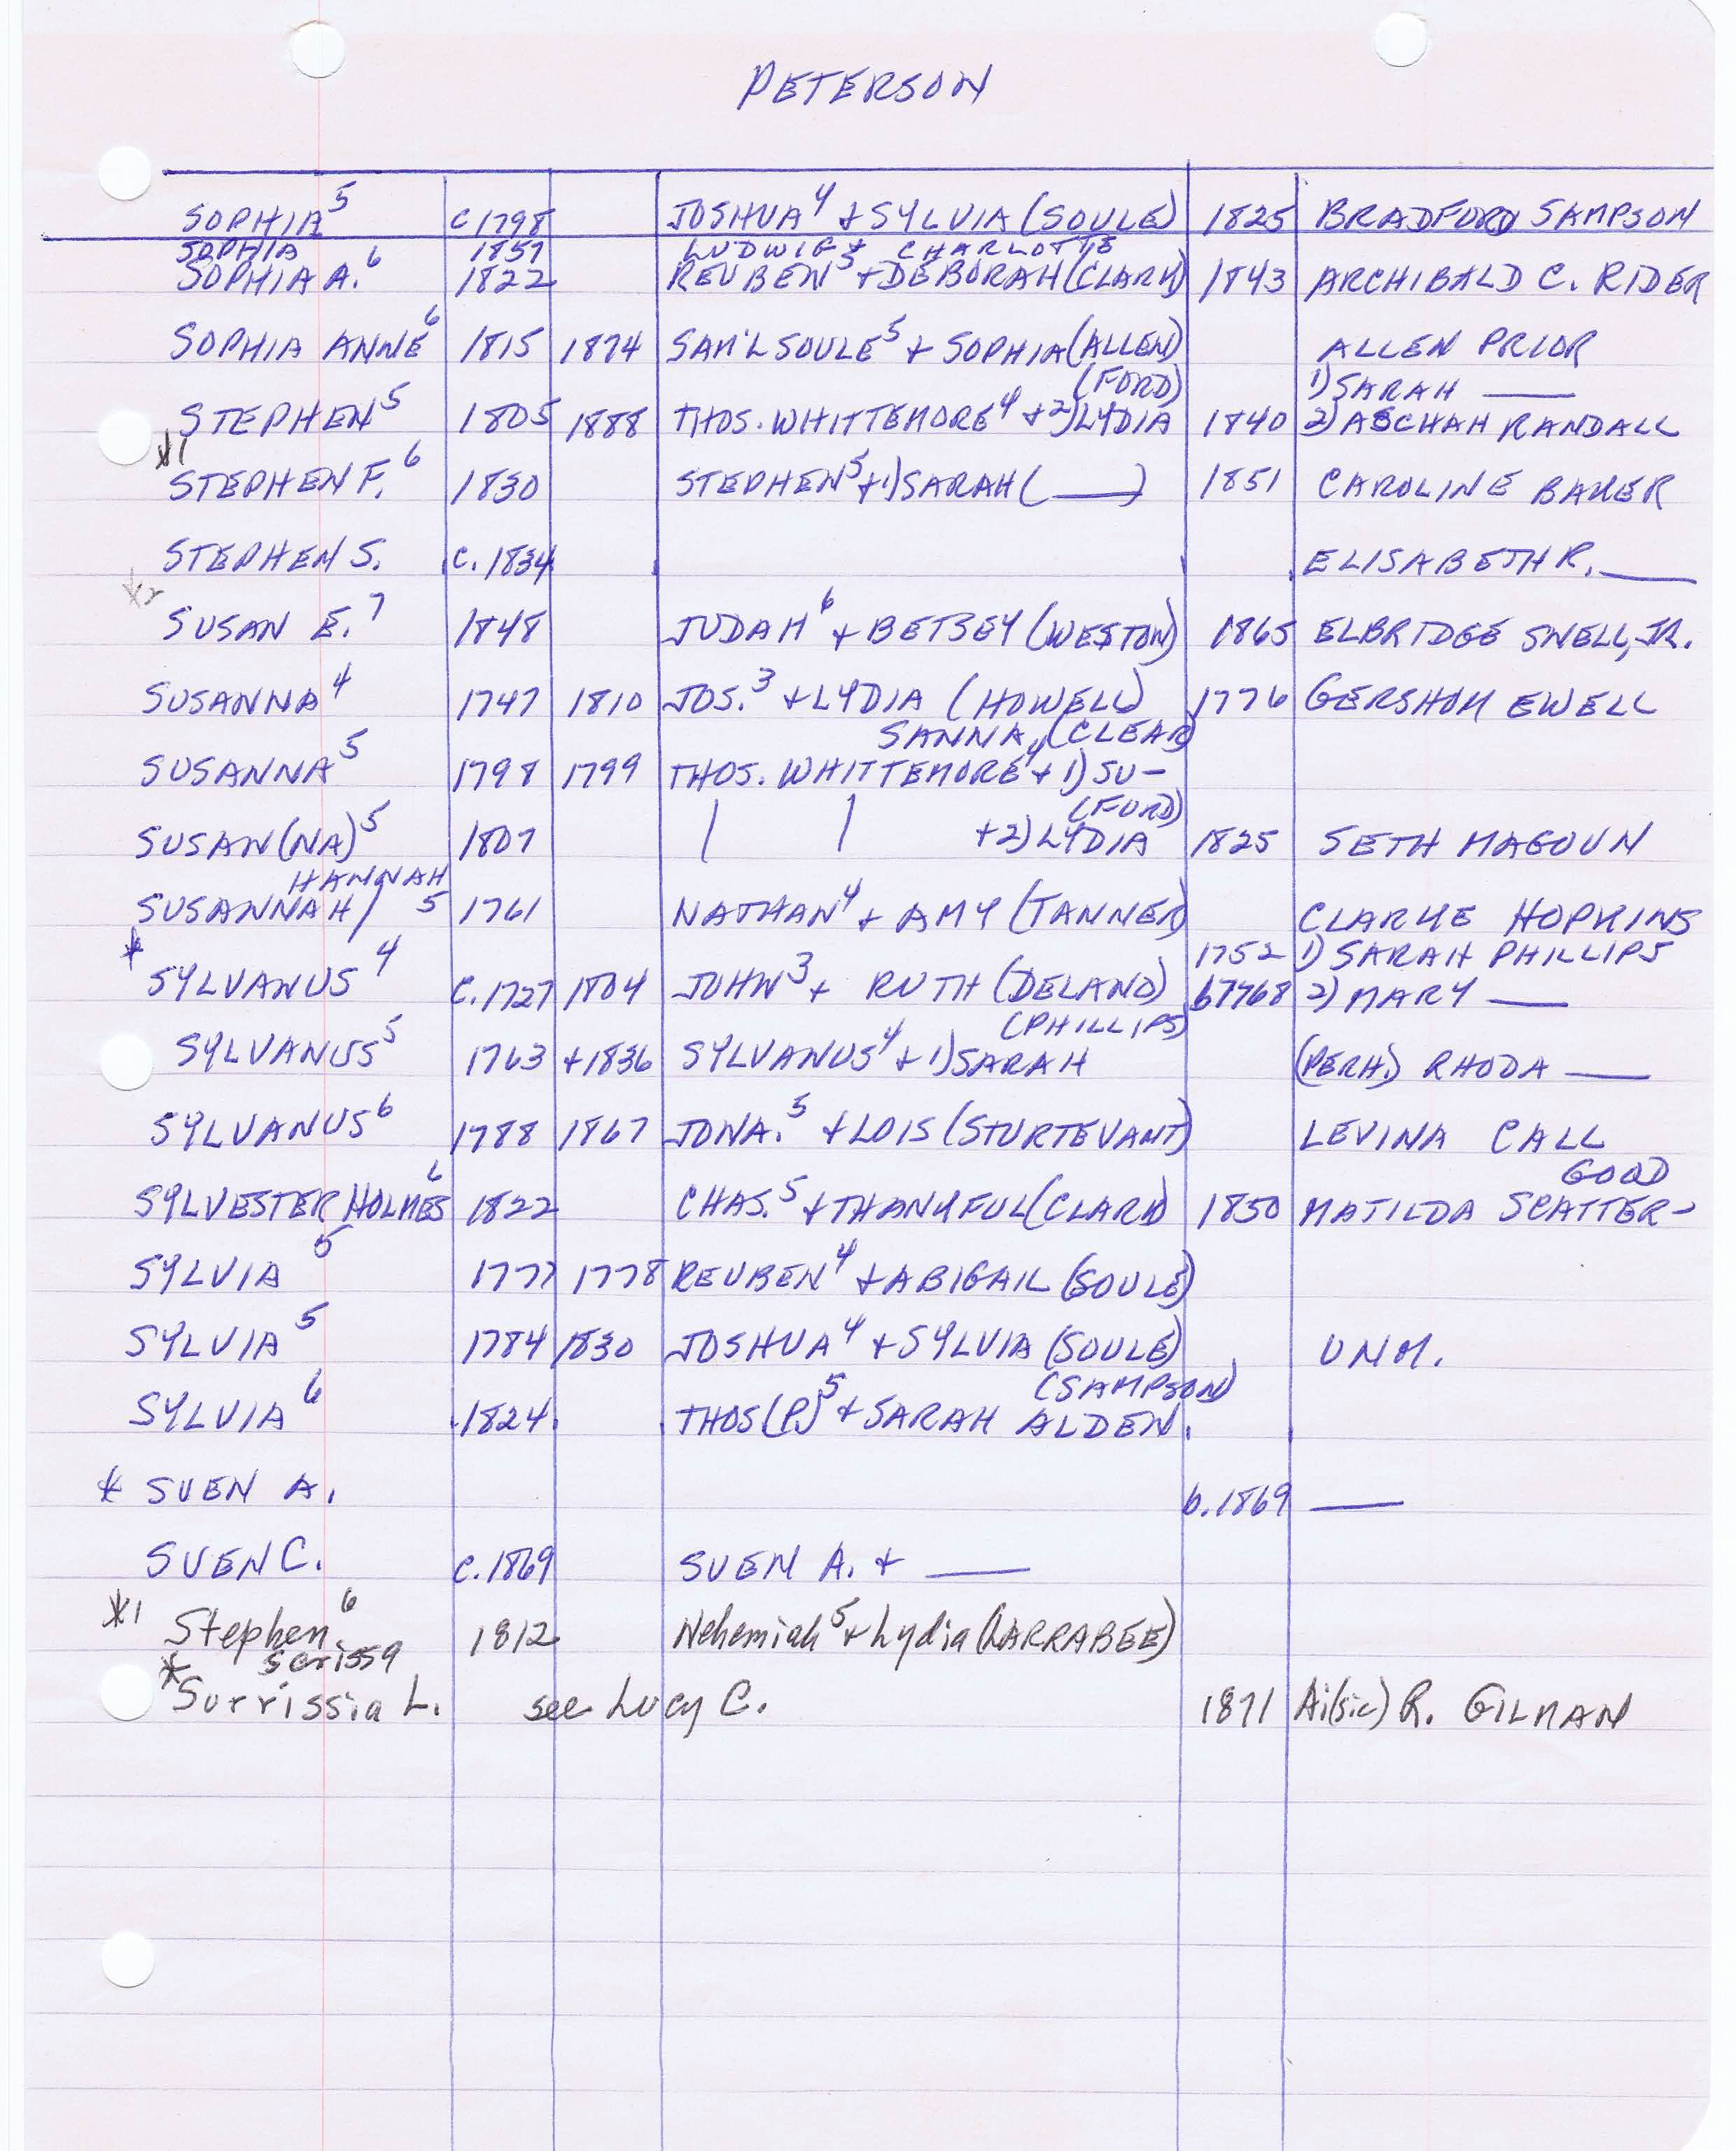 PETERSON
SOPHIA⁵ C1798 JOSHUA⁴ + SYLVIA (SOULE) 1825 BRADFORD SAMPSON
SOPHIA 1857 LUDWIG + CHARLOTTE
SOPHIA A.⁶ 1822 REUBEN⁵ + DEBORAH (CLARK) 1843 ARCHIBALD C. RIDER
SOPHIA ANNE⁶ 1815 1874 SAM'L SOULE⁵ + SOPHIA (ALLEN) ALLEN PRIOR
(FORD) 1) SARAH ——
STEPHEN⁵ 1805 1888 THOS. WHITTEMORE⁴ + 2) LYDIA 1840 2) ASCHAH RANDALL
*1
STEPHEN F.⁶ 1830 STEPHEN⁵ + 1) SARAH (——) 1851 CAROLINE BAKER
STEPHEN S. C. 1834 ELISABETH R. ——
*2
SUSAN E.⁷ 1848 JUDAH⁶ + BETSEY (WESTON) 1865 ELBRIDGE SNELL, JR.
SUSANNA⁴ 1747 1810 JOS.³ + LYDIA (HOWELL) 1776 GERSHOM EWELL
SANNA (CLEAR)
SUSANNA⁵ 1798 1799 THOS. WHITTEMORE⁴ + 1) SU-
(FORD)
SUSAN(NA)⁵ 1807 | | + 2) LYDIA 1825 SETH MAGOUN
HANNAH
SUSANNAH/ ⁵ 1761 NATHAN⁴ + AMY (TANNER) CLARKE HOPKINS
* 1752 1) SARAH PHILLIPS
SYLVANUS⁴ C. 1727 1804 JOHN³ + RUTH (DELANO) b7768 2) MARY ——
(PHILLIPS)
SYLVANUS⁵ 1763 +1836 SYLVANUS⁴ + 1) SARAH (PERH.) RHODA ——
SYLVANUS⁶ 1788 1867 JONA.⁵ + LOIS (STURTEVANT) LEVINA CALL
GOOD
SYLVESTER HOLMES⁶ 1822 CHAS.⁵ + THANKFUL (CLARK) 1850 MATILDA SCATTER-
SYLVIA⁵ 1777 1778 REUBEN⁴ + ABIGAIL (SOULE)
SYLVIA⁵ 1784 1830 JOSHUA⁴ + SYLVIA (SOULE) UNM.
(SAMPSON)
SYLVIA⁶ 1824 THOS (P.)⁵ + SARAH ALDEN
* SVEN A. b. 1869 ——
SVEN C. C. 1869 SVEN A. + ——
*1 Stephen⁶ 1812 Nehemiah⁵ + Lydia (LARRABEE)
* Serissa
Surrissia L. see Lucy C. 1871 Ai(sic) R. GILMAN